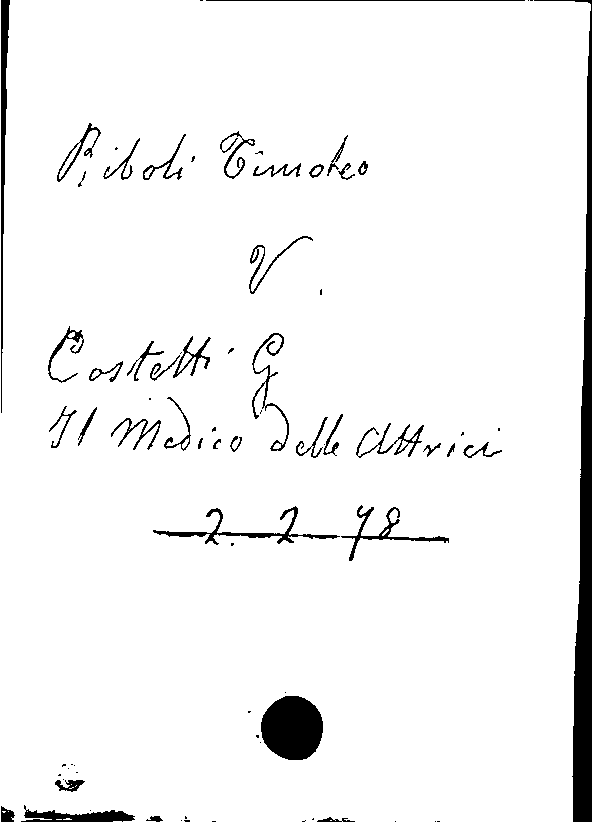 Riboli Timoteo
V.
Costetti G
Il Medico delle Attrici
2. 2 78